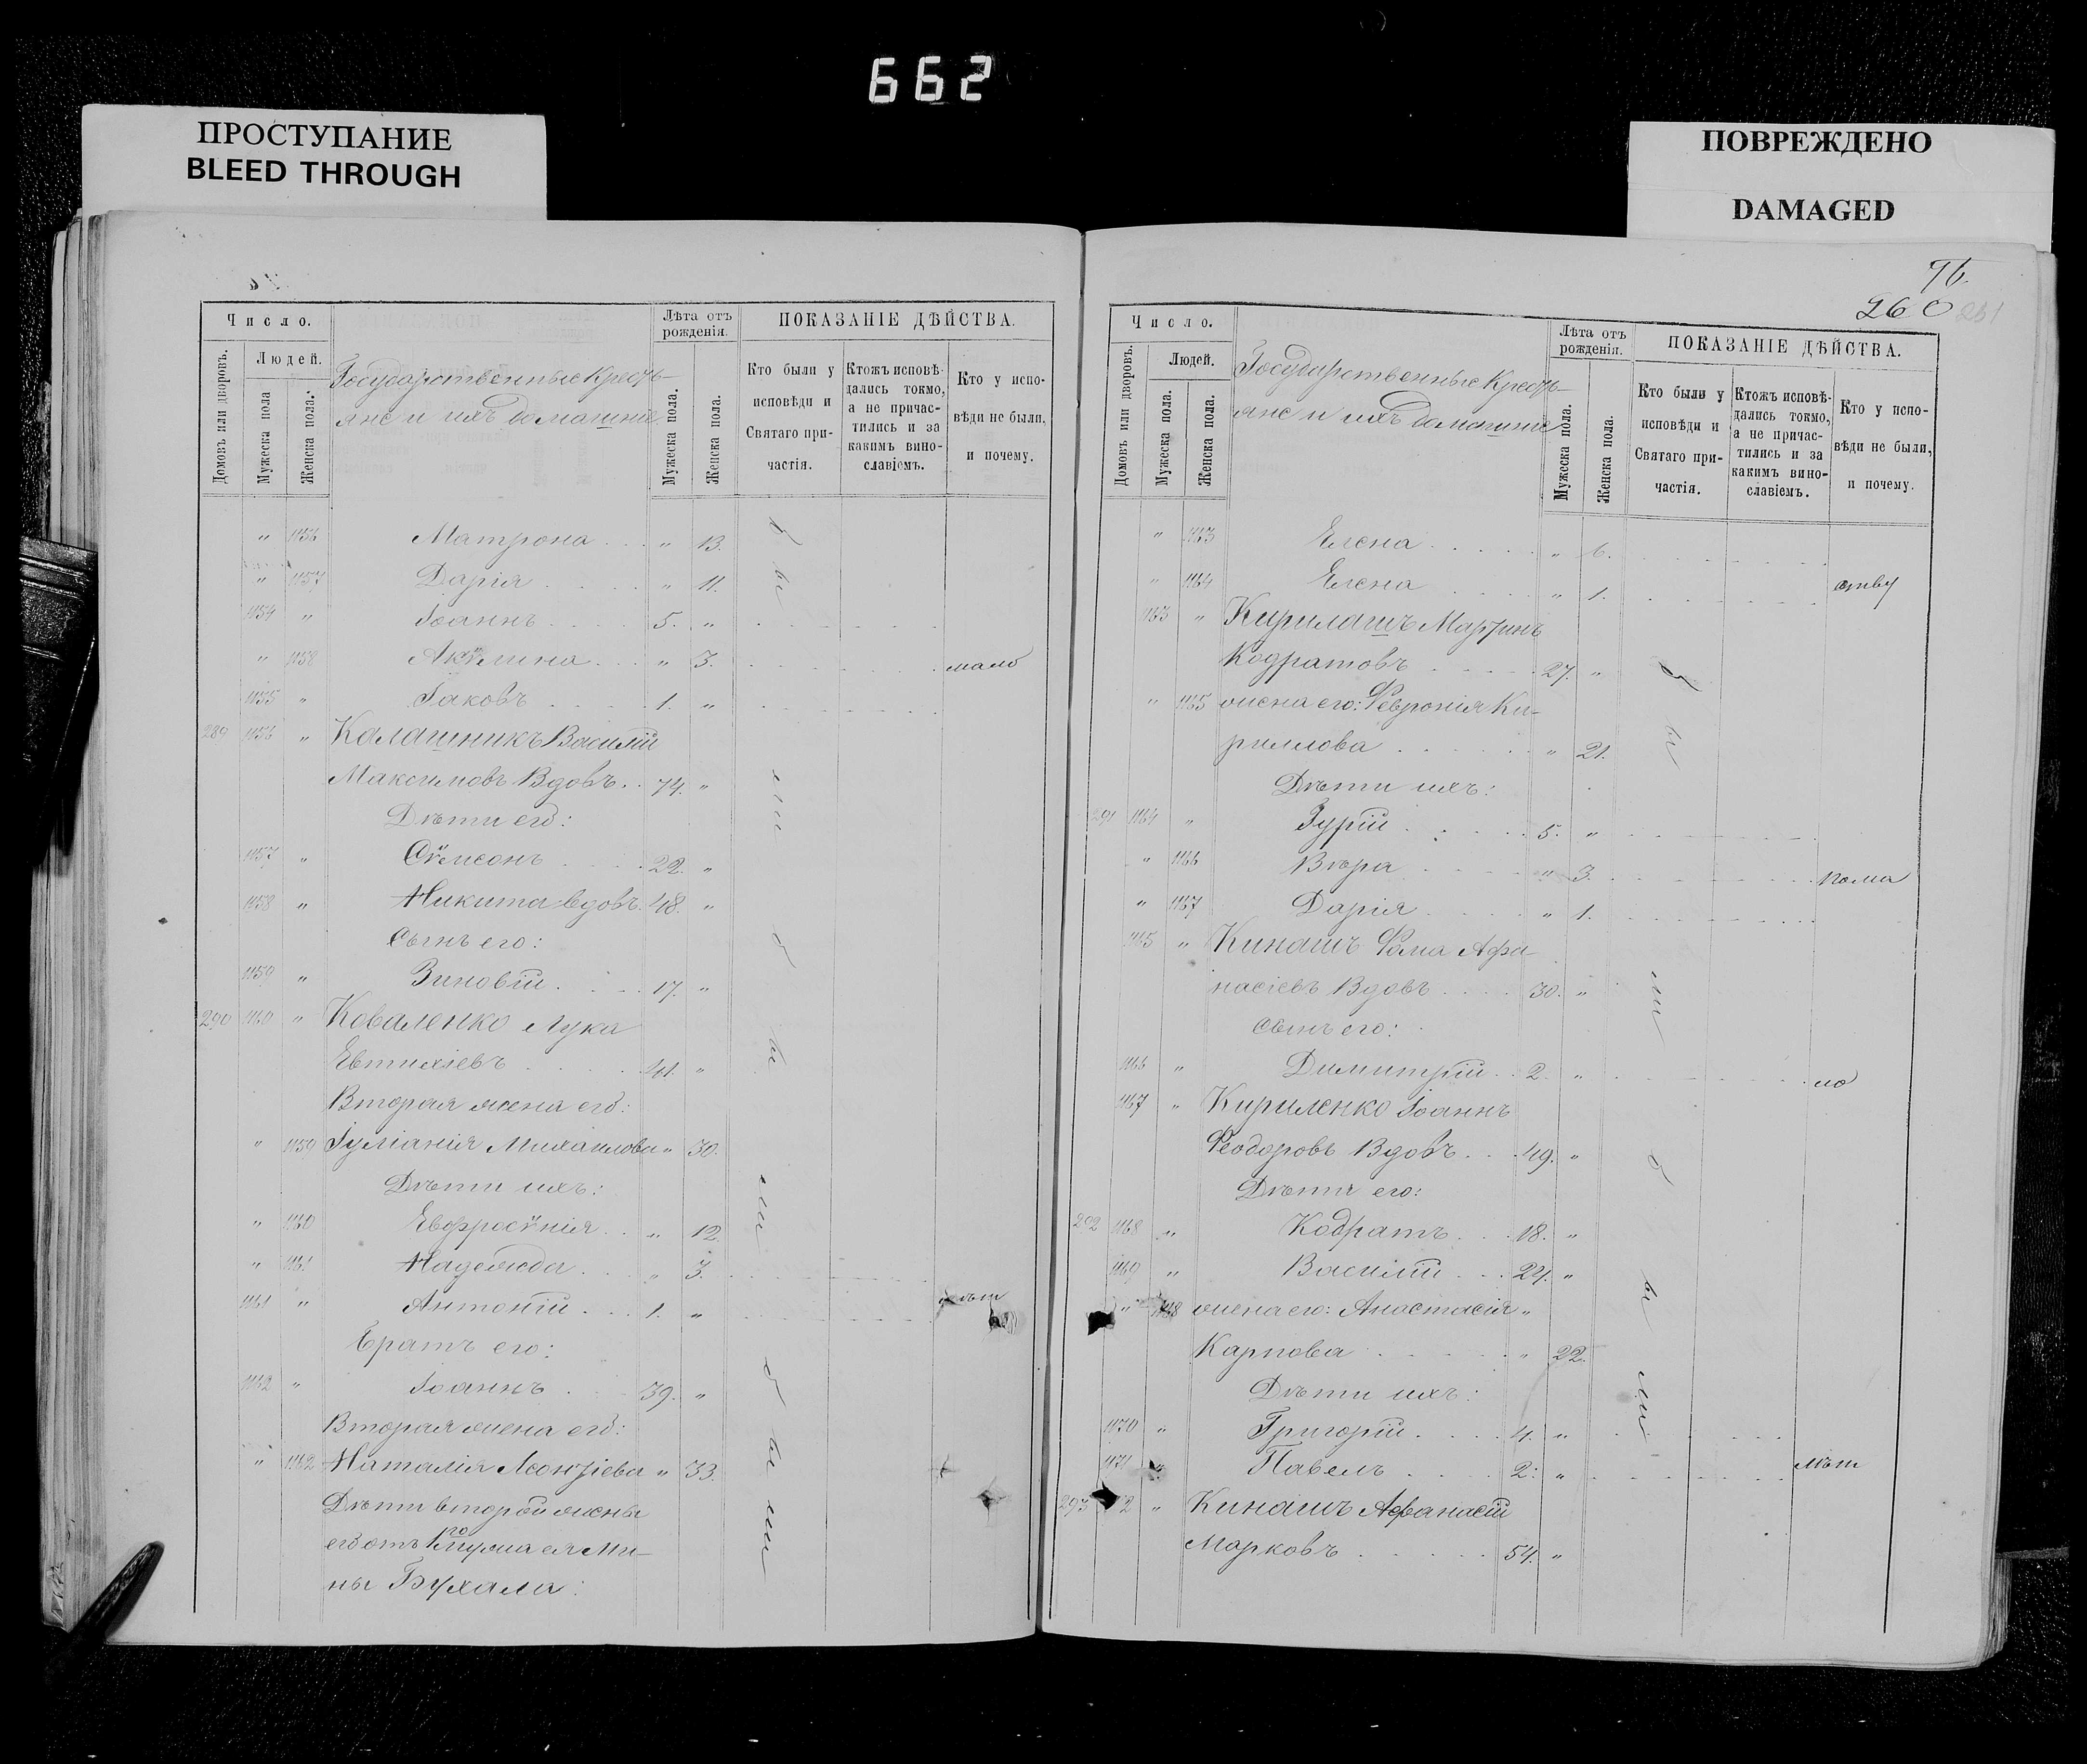 662
ПРОСТУПАНИЕ
BLEED THROUGH
ПОВРЕЖДЕНО
DAMAGED
Число.
Людей.
Домовъ или дворовъ.
Мужеска пола
Женска пола.
Государственные Кресть-
яне и ихъ домашніе
Лѣта отъ
рожденія.
Мужеска пола.
Женска пола.
ПОКАЗАНІЕ ДѢЙСТВА.
Кто были у
исповѣди и
Святаго при-
частія.
Ктожъ исповѣ-
дались токмо,
а не причас-
тились и за
какимъ вино-
славіемъ.
Кто у испо-
вѣди не были,
и почему.
" 1156 Матрона " 13.
" 1157 Дарія " 11.
1154 " Іоаннъ 5. "
" 1158 Акѵлина " 3. мало
1155 " Іаковъ 1. "
289 1156 " Калашникъ Василій
Максимовъ Вдовъ 74. "
Дѣти его:
1157 " Сѵмеонъ 22. "
1158 " Никита вдовъ 48. "
Сынъ его:
1159 " Зиновій 17. "
290 1160 " Коваленко Лука
Евтихіевъ 41. "
Вторая жена его:
" 1159 Іуліанія Михаилова " 30.
Дѣти ихъ:
" 1160 Евфросѵнія " 12.
" 1161 Надежда " 3.
1161 " Антоній 1. " лѣт
Братъ его:
1162 " Іоаннъ 39. "
Вторая жена его:
" 1162 Наталія Леонтіева " 33.
Дѣти второй жены
его отъ 1го мужа ея Ми-
ны Бухала:
бы
ли
бы
ли
бы
ли
96.
260 261
Число.
Людей.
Домовъ или дворовъ.
Мужеска пола.
Женска пола.
Государственные Кресть-
яне и ихъ домашніе
Лѣта отъ
рожденія.
Мужеска пола.
Женска пола.
ПОКАЗАНІЕ ДѢЙСТВА.
Кто были у
исповѣди и
Святаго при-
частія.
Ктожъ исповѣ-
дались токмо,
а не причас-
тились и за
какимъ вино-
славіемъ.
Кто у испо-
вѣди не были,
и почему.
" 1163 Елена " 6.
" 1164 Елена " 1. ству
1163 " Кирилашъ Мартинъ
Кодратовъ 27. "
" 1165 жена его: Февронія Ки-
риллова " 21.
Дѣти ихъ:
291 1164 " Гурій 5. "
" 1166 Вѣра " 3.
" 1167 Дарія " 1.
1165 " Кинашъ Фома Афа-
насіевъ Вдовъ 30. "
Сынъ его:
1166 " Димитрій 2. "
1167 " Кириленко Іоаннъ
Феодоровъ Вдовъ 49. "
Дѣти его:
292 1168 " Кодратъ 18. "
1169 " Василій 24. "
" 1168 жена его: Анастасія "
Карпова " 22.
Дѣти ихъ:
1170 " Григорій 4. "
1171 " Павелъ 2. " лѣт
293 " Кинашъ Афанасій
Марковъ 54. "
бы
ли
бы
ли